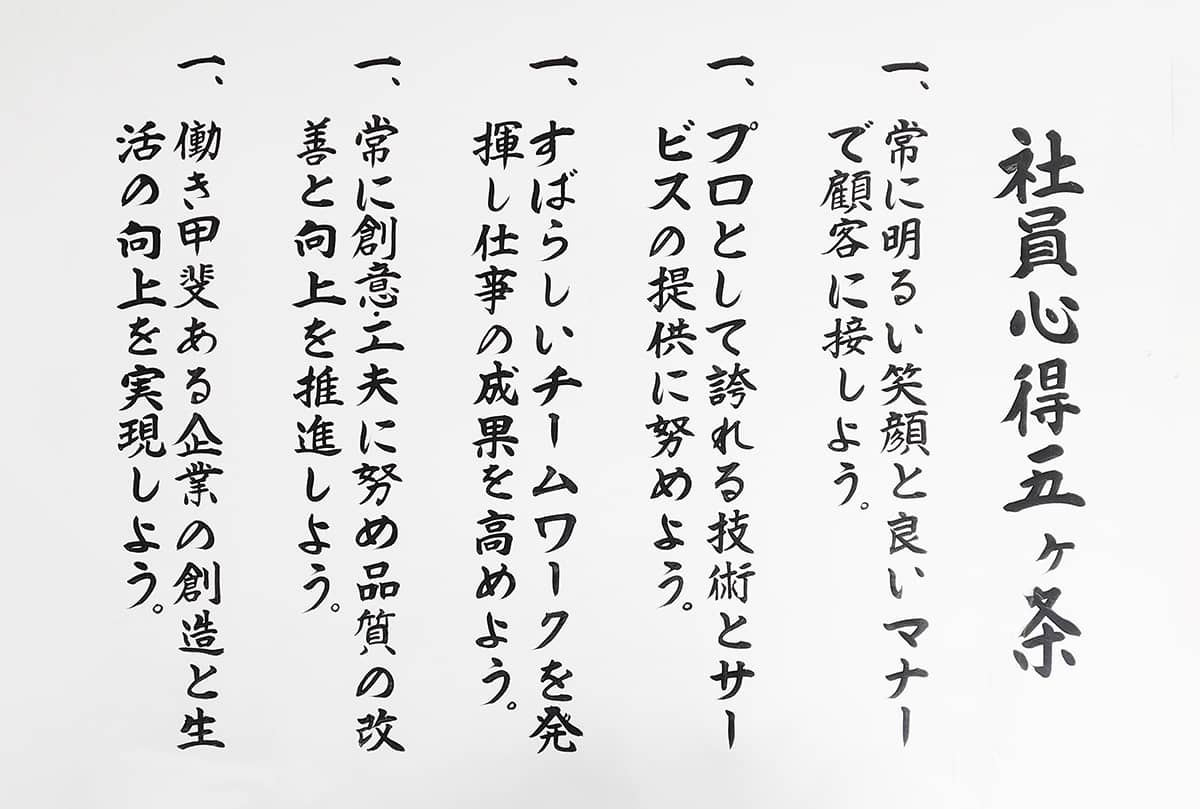 社員心得五ヶ条
一、常に明るい笑顔と良いマナー
で顧客に接しよう。
一、プロとして誇れる技術とサー
ビスの提供に努めよう。
一、すばらしいチームワークを発
揮し仕事の成果を高めよう。
一、常に創意・工夫に努め品質の改
善と向上を推進しよう。
一、働き甲斐ある企業の創造と生
活の向上を実現しよう。